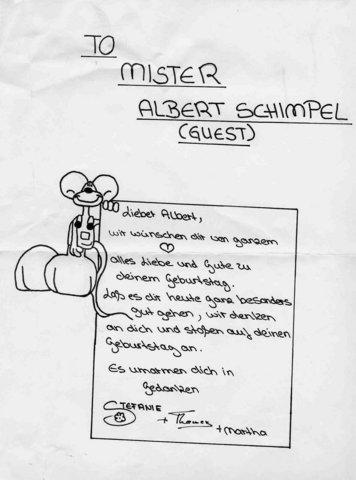 TO
MISTER
ALBERT SCHIMPEL
(GUEST)
Lieber Albert,
wir wünschen dir von ganzem
♡
alles Liebe und Gute zu
deinem Geburtstag.
Laß es dir heute ganz besonders
gut gehen, wir denken
an dich und stoßen auf deinen
Geburtstag an.
Es umarmen dich in
Gedanken
STEFANIE
+ Thomas
+ Martha